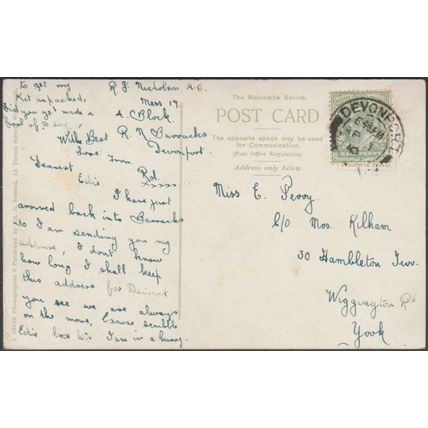 to get my
Kit unpacked,
Did you get made a
fool of to day
With Best
Love from
R. J. Nicholson, A.C.
Mess 19.
A. Block.
R. N Barracks
Devonport.
Dearest
Edie
I have just
arrived back into Barracks
so I am sending you my
address, I don't know
how long I shall keep
this address for
you see we are always
on the move, Excuse scribble
Edie I am in a hurry.
The Malcombe Series.
POST CARD
The opposite space may be used
for Communication.
(Post Office Regulation).
Address only below.
DEVONPORT
HALF PENNY
Miss E. Percy
C/o Mrs. Kilham
30 Hambleton Terr.
Wiggington Rd
York